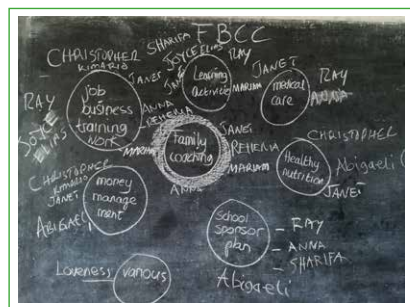 FBCC
CHRISTOPHER
KIMARIO
SHARIFA
JOYCE ELIAS
RAY
JANET
JANE
Learning
activities
MARIAM
JANET
medical
care
RAY
ANNA
job
business
training
work
RAY
JOYCE
ELIAS
ANNA
REHEMA
MARIAM
Family
coaching
JANET
REHEMA
MARIAM
ANNA
CHRISTOPHER
Healthy
nutrition
Abigaeli
JANET
CHRISTOPHER
KIMARIO
JANET
ABIGAEL
money
manage
ment
School
sponsor
plan
- RAY
- ANNA
- SHARIFA
Abigaeli
Loveness
various